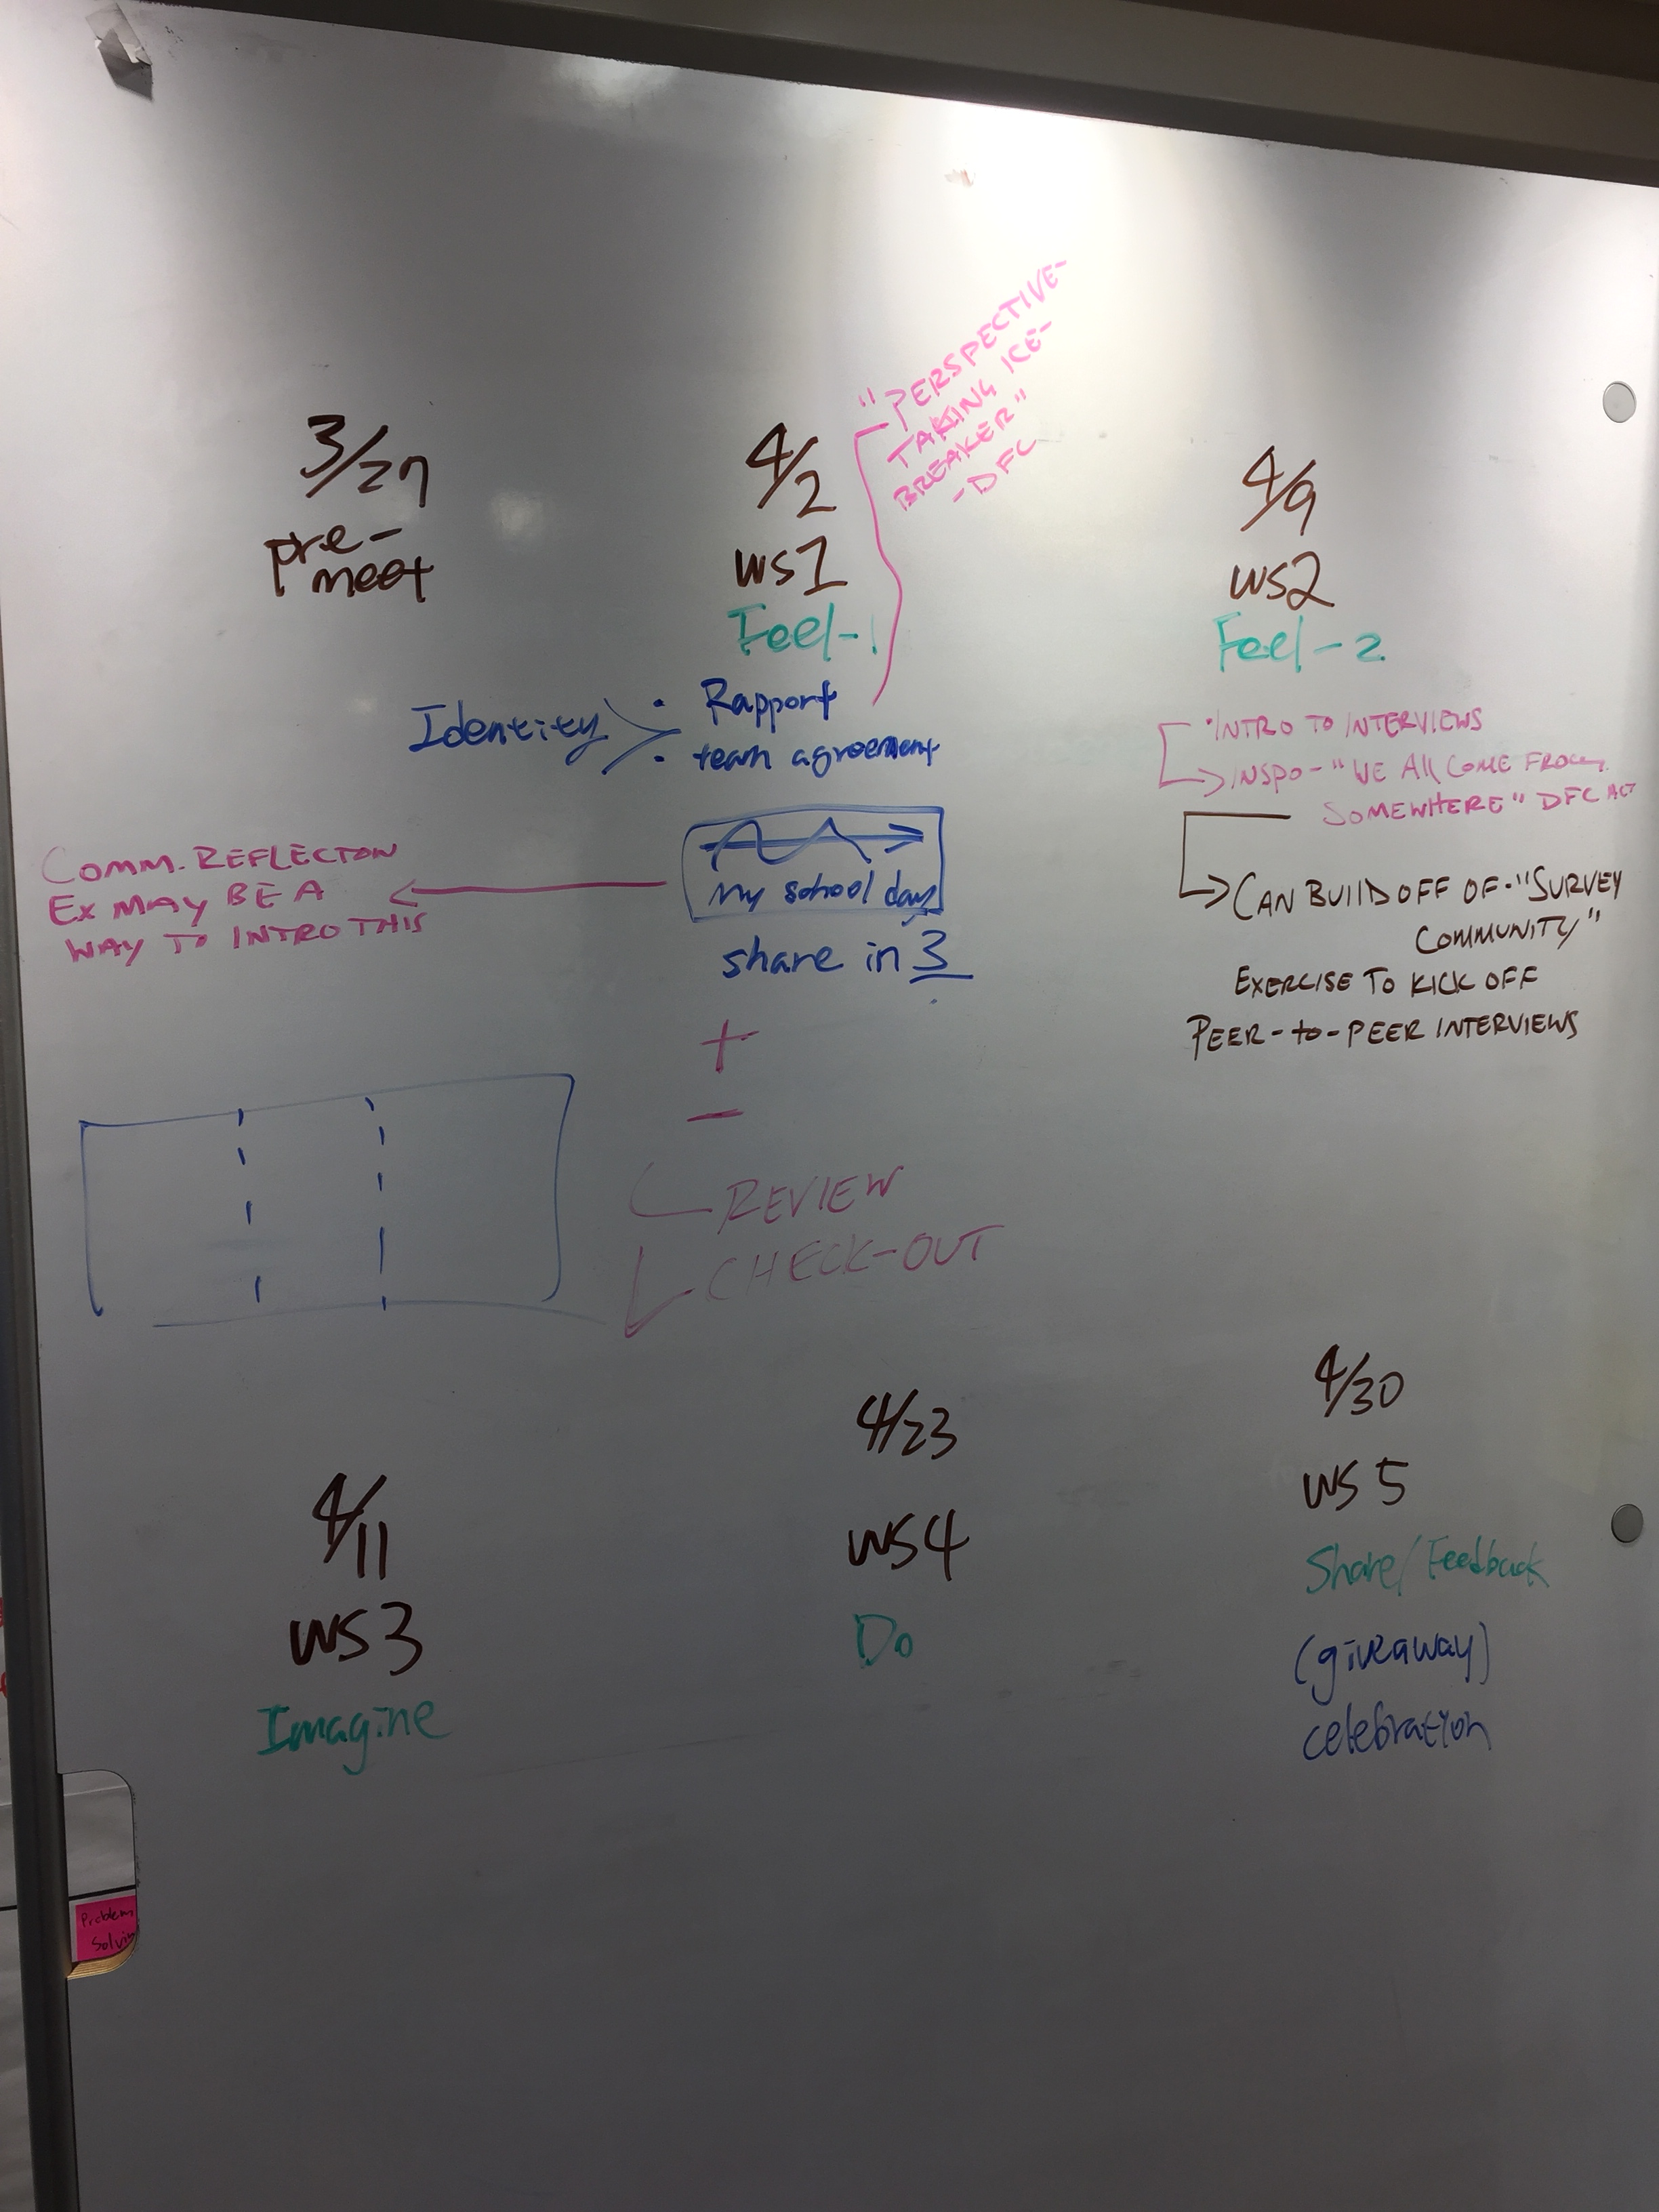 3/27
pre-
meet
4/2
WS1
Feel-1
"PERSPECTIVE-
TAKING ICE-
BREAKER"
-DFC
Identity
• Rapport
• team agreement
my school day
share in 3
+
-
REVIEW
CHECK-OUT
COMM. REFLECTON
EX MAY BE A
WAY TO INTRO THIS
4/9
WS2
Feel-2
• INTRO TO INTERVIEWS
INSPO - "WE All COME FROM
SOMEWHERE" DFC ACT
CAN BUILD OFF OF - "SURVEY
COMMUNITY"
EXERCISE TO KICK OFF
PEER-to-PEER INTERVIEWS
4/11
WS3
Imagine
4/23
WS4
Do
4/30
WS5
Share/Feedback
(giveaway)
celebration
Problem
Solvin